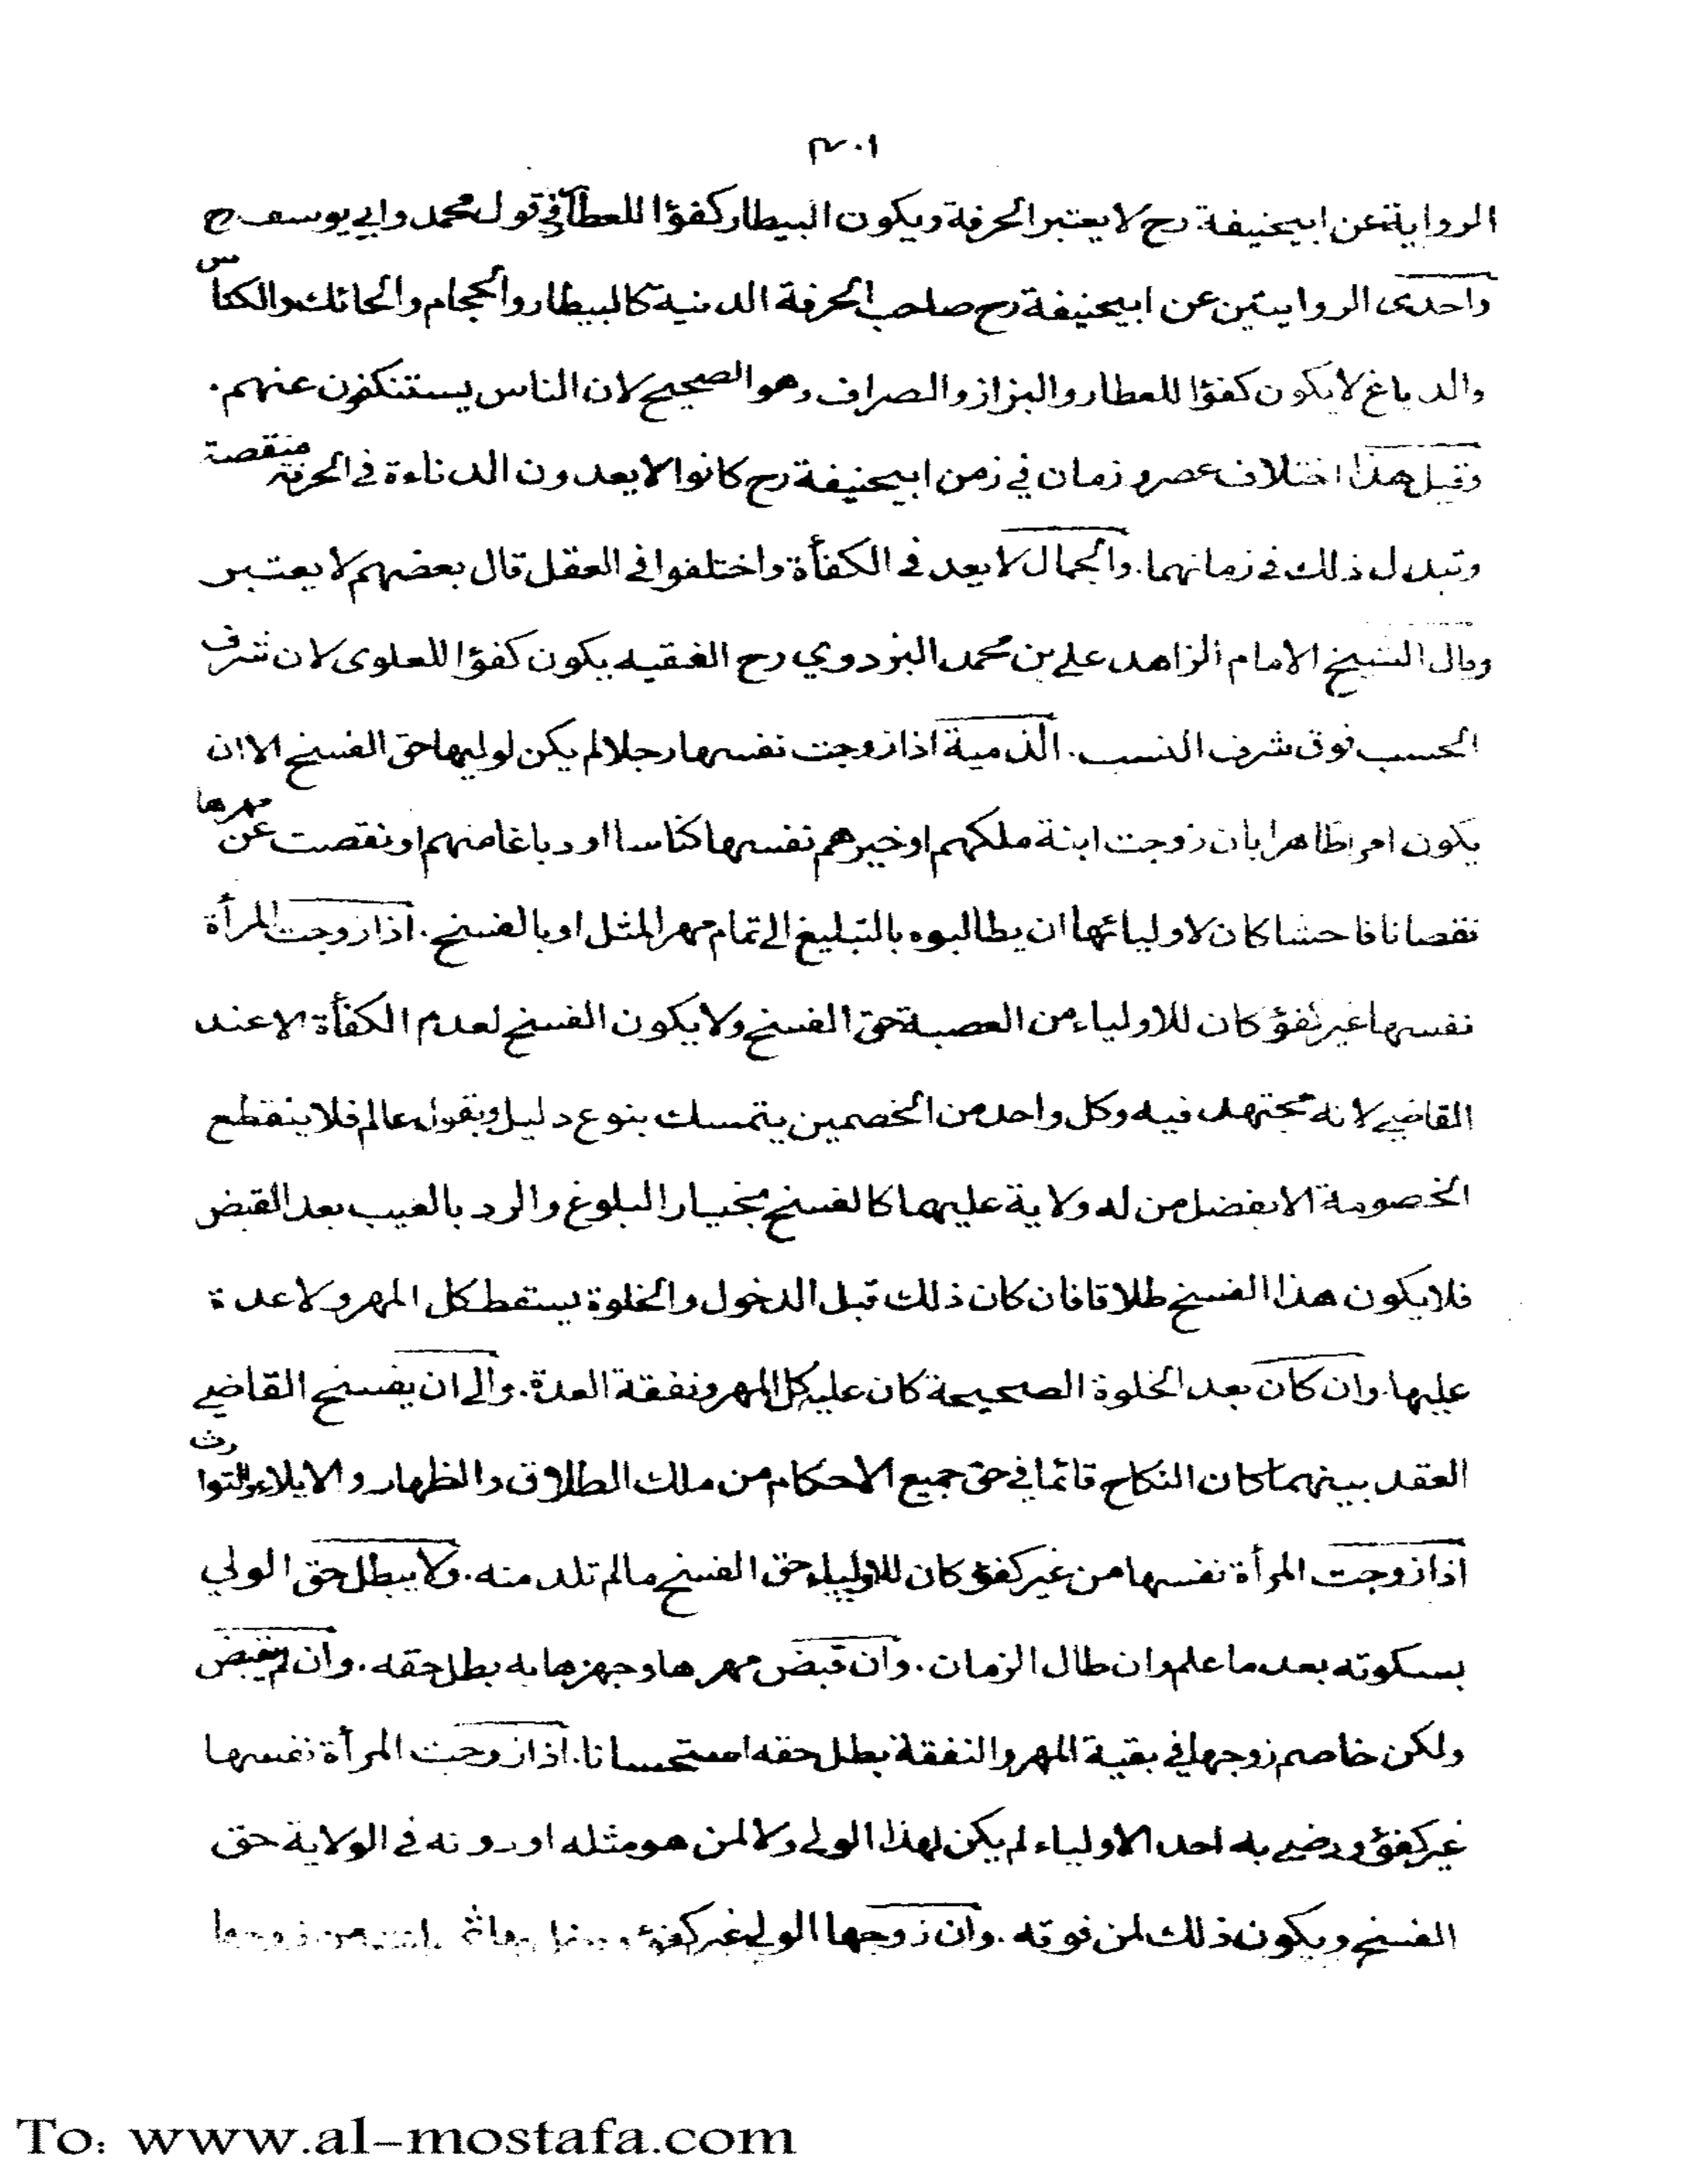 ٤٠١
الرواية عن ابيحنيفة رح لا يعتبر الحرفة ويكون البيطار كفؤا للعطار في قول محمد وابي يوسف رح
واحدى الروايتين عن ابيحنيفة رح صاحب الحرفة الدنية كالبيطار والحجام والحائك والكناس
والدباغ لا يكون كفؤا للعطار والبزاز والصراف وهو الصحيح لان الناس يستنكفون عنهم ·
وقيل هذا اختلاف عصر و زمان في زمن ابيحنيفة رح كانوا لا يعدون الدناءة في الحرفة منقصة
وتبدل ذلك في زمانهما · والجمال لا يعد في الكفأة واختلفوا في العقل قال بعضهم لا يعتبر
وقال الشيخ الامام الزاهد علي بن محمد البزدوي رح الفقيه يكون كفؤا للعلوى لان شرف
الحسب فوق شرف النسب · الذمية اذا زوجت نفسها رجلا لم يكن لوليها حق الفسخ الا ان
يكون امرا ظاهرا بان زوجت ابنة ملكهم او خيرهم نفسها كناسا او دباغا منهم او نقصت عن مهرها
نقصانا فاحشا كان لاوليائها ان يطالبوه بالتبليغ الى تمام مهر المثل او بالفسخ · اذا زوجت المرأة
نفسها غير كفؤ كان للاولياء من العصبة حق الفسخ ولا يكون الفسخ لعدم الكفأة الا عند
القاضي لانه مجتهد فيه وكل واحد من الخصمين يتمسك بنوع دليل وبقول عالم فلا ينقطع
الخصومة الا بفضل من له ولاية عليهما كالفسخ بخيار البلوغ والرد بالعيب بعد القبض
فلا يكون هذا الفسخ طلاقا فان كان ذلك قبل الدخول والخلوة يسقط كل المهر ولا عدة
عليها · وان كان بعد الخلوة الصحيحة كان عليه كل المهر ونفقة العدة · والى ان يفسخ القاضي
العقد بينهما كان النكاح قائما في حق جميع الاحكام من ملك الطلاق والظهار والايلاء والتوارث
اذا زوجت المرأة نفسها من غير كفؤ كان للاولياء حق الفسخ مالم تلد منه · ولا يبطل حق الولي
بسكوته بعد ما علم وان طال الزمان · وان قبض مهرها وجهزها به بطل حقه · وان لم يقبض
ولكن خاصم زوجها في بقية المهر والنفقة بطل حقه استحسانا · اذا زوجت المرأة نفسها
غير كفؤ ورضي به احد الاولياء لم يكن لهذا الولي ولا لمن هو مثله او دونه في الولاية حق
الفسخ ويكون ذلك لمن فوقه · وان زوجها الولي غير كفؤ من زوجها
To: www.al-mostafa.com